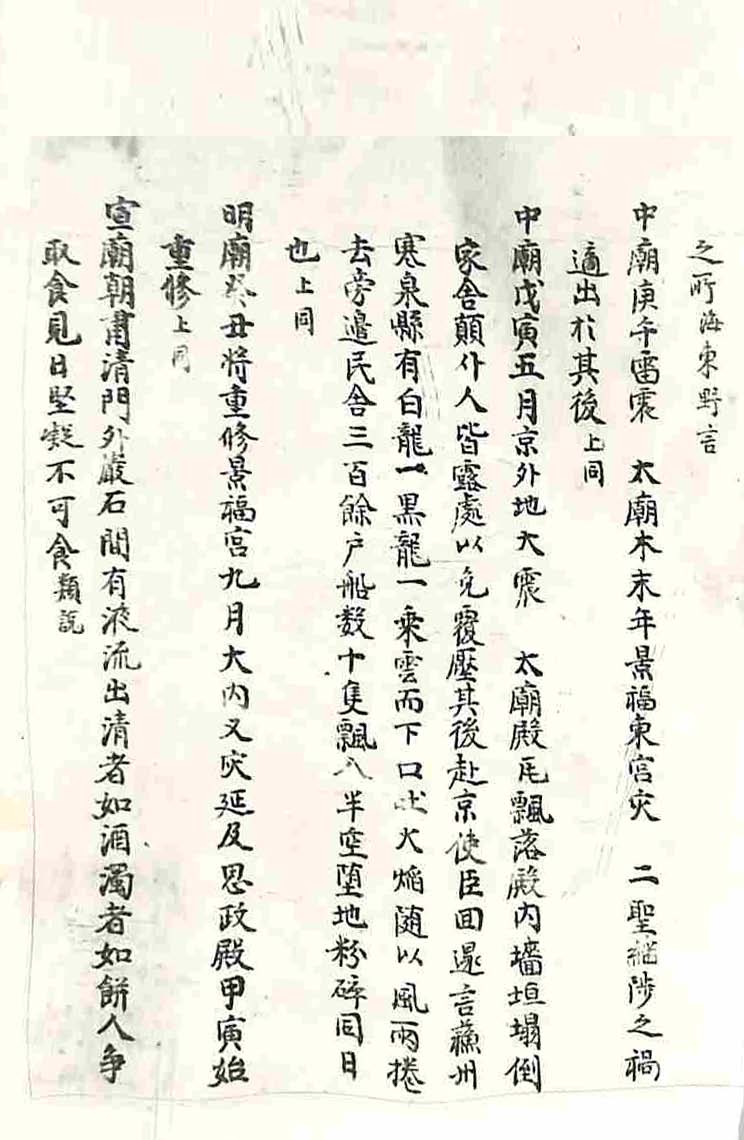 之所海東野言
中廟庚午雷震　太廟木末年景福東宮灾　二聖継陟之禍
適出於其後上同
中廟戊寅五月京外地大震　太廟殿瓦飄落殿內墻垣塌倒
家舍顛仆人皆露處以免覆壓其後赴京使臣回還言蘓州
寒泉縣有白龍一黑龍一乘雲而下口吐火焰随以風雨捲
去旁邉民舍三百餘戶船数十隻飄入半空墮地粉碎同日
也上同
明廟癸丑將重修景福宮九月大內又灾延及思政殿甲寅始
重修上同
宣廟朝肅清門外巖石間有液流出清者如酒濁者如餅人争
取食見日堅凝不可食類説